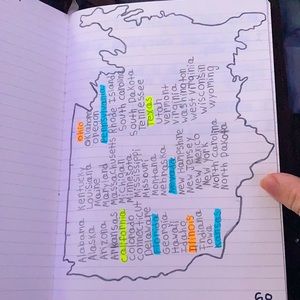 Alabama
Alaska
Arizona
Arkansas
california
Colorado
Connecticut
Delaware
Florida
Georgia
Hawaii
Idaho
Illinois
Indiana
Iowa
Kansas
Kentucky
Louisiana
Maine
Maryland
Massachusetts
Michigan
Mississippi
Missouri
Montana
Nebraska
New Hampshire
New Jersey
New Mexico
New York
North Carolina
North Dakota
ohio
oklahoma
oregon
pennsylvania
Rhode Island
South Carolina
South Dakota
Tennessee
Texas
Utah
Vermont
Virginia
Washington
West Virginia
Wisconsin
Wyoming